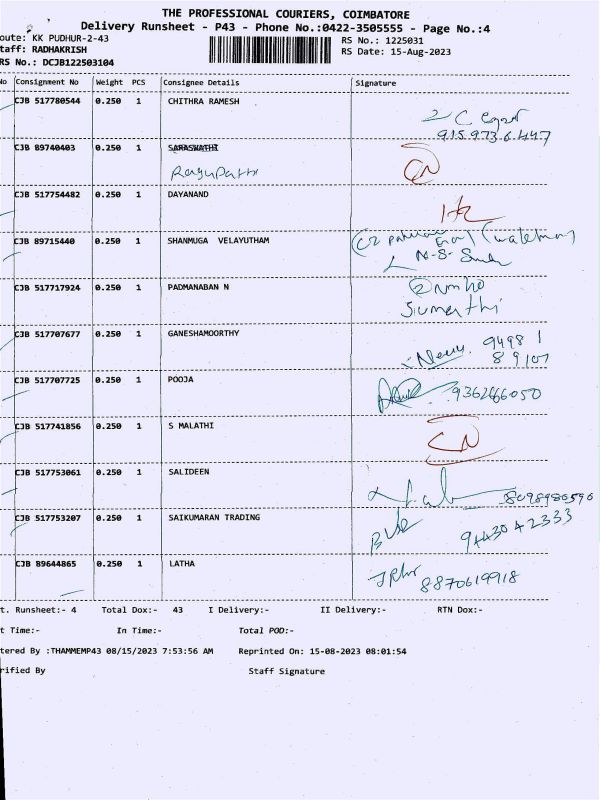 THE PROFESSIONAL COURIERS, COIMBATORE
Delivery Runsheet - P43 - Phone No.:0422-3505555 - Page No.:4
oute: KK PUDHUR-2-43 RS No.: 1225031
taff: RADHAKRISH RS Date: 15-Aug-2023
RS No.: DCJB122503104
No Consignment No Weight PCS Consignee Details Signature
CJB 517780544 0.250 1 CHITHRA RAMESH
915 9736447
CJB 89740403 0.250 1 SARASWATHI
Ragupathi CN
CJB 517754482 0.250 1 DAYANAND
CJB 89715440 0.250 1 SHANMUGA VELAYUTHAM
(watchman)
CJB 517717924 0.250 1 PADMANABAN N
Sumathi
CJB 517707677 0.250 1 GANESHAMOORTHY 9498 1
89107
CJB 517707725 0.250 1 POOJA
9362666050
CJB 517741856 0.250 1 S MALATHI
CN
CJB 517753061 0.250 1 SALIDEEN
8098986596
CJB 517753207 0.250 1 SAIKUMARAN TRADING 9443042333
CJB 89644865 0.250 1 LATHA
8870619918
t. Runsheet:- 4 Total Dox:- 43 I Delivery:- II Delivery:- RTN Dox:-
t Time:- In Time:- Total POD:-
tered By :THAMMEMP43 08/15/2023 7:53:56 AM Reprinted On: 15-08-2023 08:01:54
rified By Staff Signature